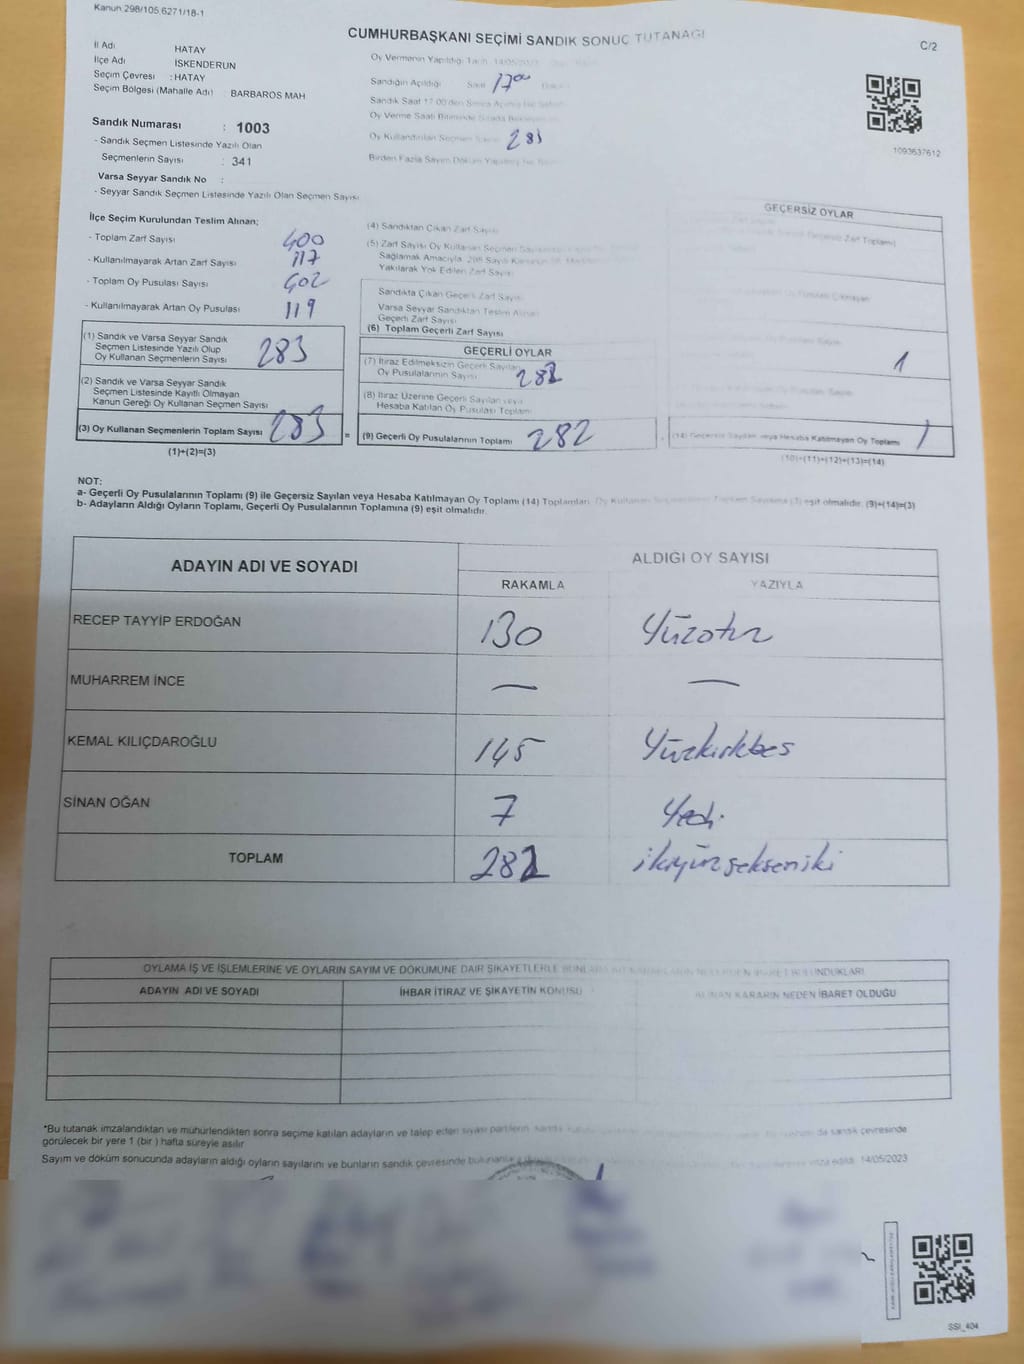 Kanun 298/105,6271/18-1
CUMHURBAŞKANI SEÇİMİ SANDIK SONUÇ TUTANAĞI
C/2
İl Adı HATAY
İlçe Adı İSKENDERUN
Seçim Çevresi : HATAY
Seçim Bölgesi (Mahalle Adı) : BARBAROS MAH
Oy Vermenin Yapıldığı Tarih 14/05/2023
Sandığın Açıldığı Saat 17 00
Sandık Saat 17.00'den Sonra
Oy Verme Saati Bitiminde
Oy Kullandırılan Seçmen 283
Birden Fazla Sayım Döküm
1093637612
Sandık Numarası : 1003
- Sandık Seçmen Listesinde Yazılı Olan
Seçmenlerin Sayısı : 341
Varsa Seyyar Sandık No :
- Seyyar Sandık Seçmen Listesinde Yazılı Olan Seçmen Sayısı
İlçe Seçim Kurulundan Teslim Alınan;
- Toplam Zarf Sayısı 400
- Kullanılmayarak Artan Zarf Sayısı 117
- Toplam Oy Pusulası Sayısı 402
- Kullanılmayarak Artan Oy Pusulası 119
(1) Sandık ve Varsa Seyyar Sandık
Seçmen Listesinde Yazılı Olup
Oy Kullanan Seçmenlerin Sayısı 283
(2) Sandık ve Varsa Seyyar Sandık
Seçmen Listesinde Kayıtlı Olmayan
Kanun Gereği Oy Kullanan Seçmen Sayısı
(3) Oy Kullanan Seçmenlerin Toplam Sayısı 283
(1)+(2)=(3)
=
(4) Sandıktan Çıkan Zarf Sayısı
(5) Zarf Sayısı Oy Kullanan Seçmen
Sağlamak Amacıyla, 298 Sayılı
Yakılarak Yok Edilen Zarf Sayısı
Sandıkta Çıkan Geçerli Zarf Sayısı
Varsa Seyyar Sandıktan Teslim Alınan
Geçerli Zarf Sayısı
(6) Toplam Geçerli Zarf Sayısı
GEÇERLİ OYLAR
(7) İtiraz Edilmeksizin Geçerli Sayılan
Oy Pusulalarının Sayısı 282
(8) İtiraz Üzerine Geçerli Sayılan veya
Hesaba Katılan Oy Pusulası Toplamı
(9) Geçerli Oy Pusulalarının Toplamı 282
GEÇERSİZ OYLAR
1
(14) Geçersiz Sayılan veya Hesaba Katılmayan Oy Toplamı 1
(10)+(11)+(12)+(13)=(14)
NOT:
a- Geçerli Oy Pusulalarının Toplamı (9) ile Geçersiz Sayılan veya Hesaba Katılmayan Oy Toplamı (14) Toplamları, Oy Kullanan Seçmenlerin Toplam Sayısına (3) eşit olmalıdır. (9)+(14)=(3)
b- Adayların Aldığı Oyların Toplamı, Geçerli Oy Pusulalarının Toplamına (9) eşit olmalıdır.
ADAYIN ADI VE SOYADI
ALDIĞI OY SAYISI
RAKAMLA YAZIYLA
RECEP TAYYİP ERDOĞAN 130 Yüzotuz
MUHARREM İNCE — —
KEMAL KILIÇDAROĞLU 145 Yüzkırkbeş
SİNAN OĞAN 7 Yedi
TOPLAM 282 ikiyüzsekseniki
OYLAMA İŞ VE İŞLEMLERİNE VE OYLARIN SAYIM VE DÖKÜMÜNE DAİR ŞİKAYETLERLE
ADAYIN ADI VE SOYADI İHBAR İTİRAZ VE ŞİKAYETİN KONUSU ALINAN KARARIN NEDEN İBARET OLDUĞU
*Bu tutanak imzalandıktan ve mühürlendikten sonra seçime katılan adayların ve talep eden siyasi partilerin da sandık çevresinde
görülecek bir yere 1 (bir) hafta süreyle asılır
Sayım ve döküm sonucunda adayların aldığı oyların sayılarını ve bunların sandık çevresinde 14/05/2023
SSİ_404